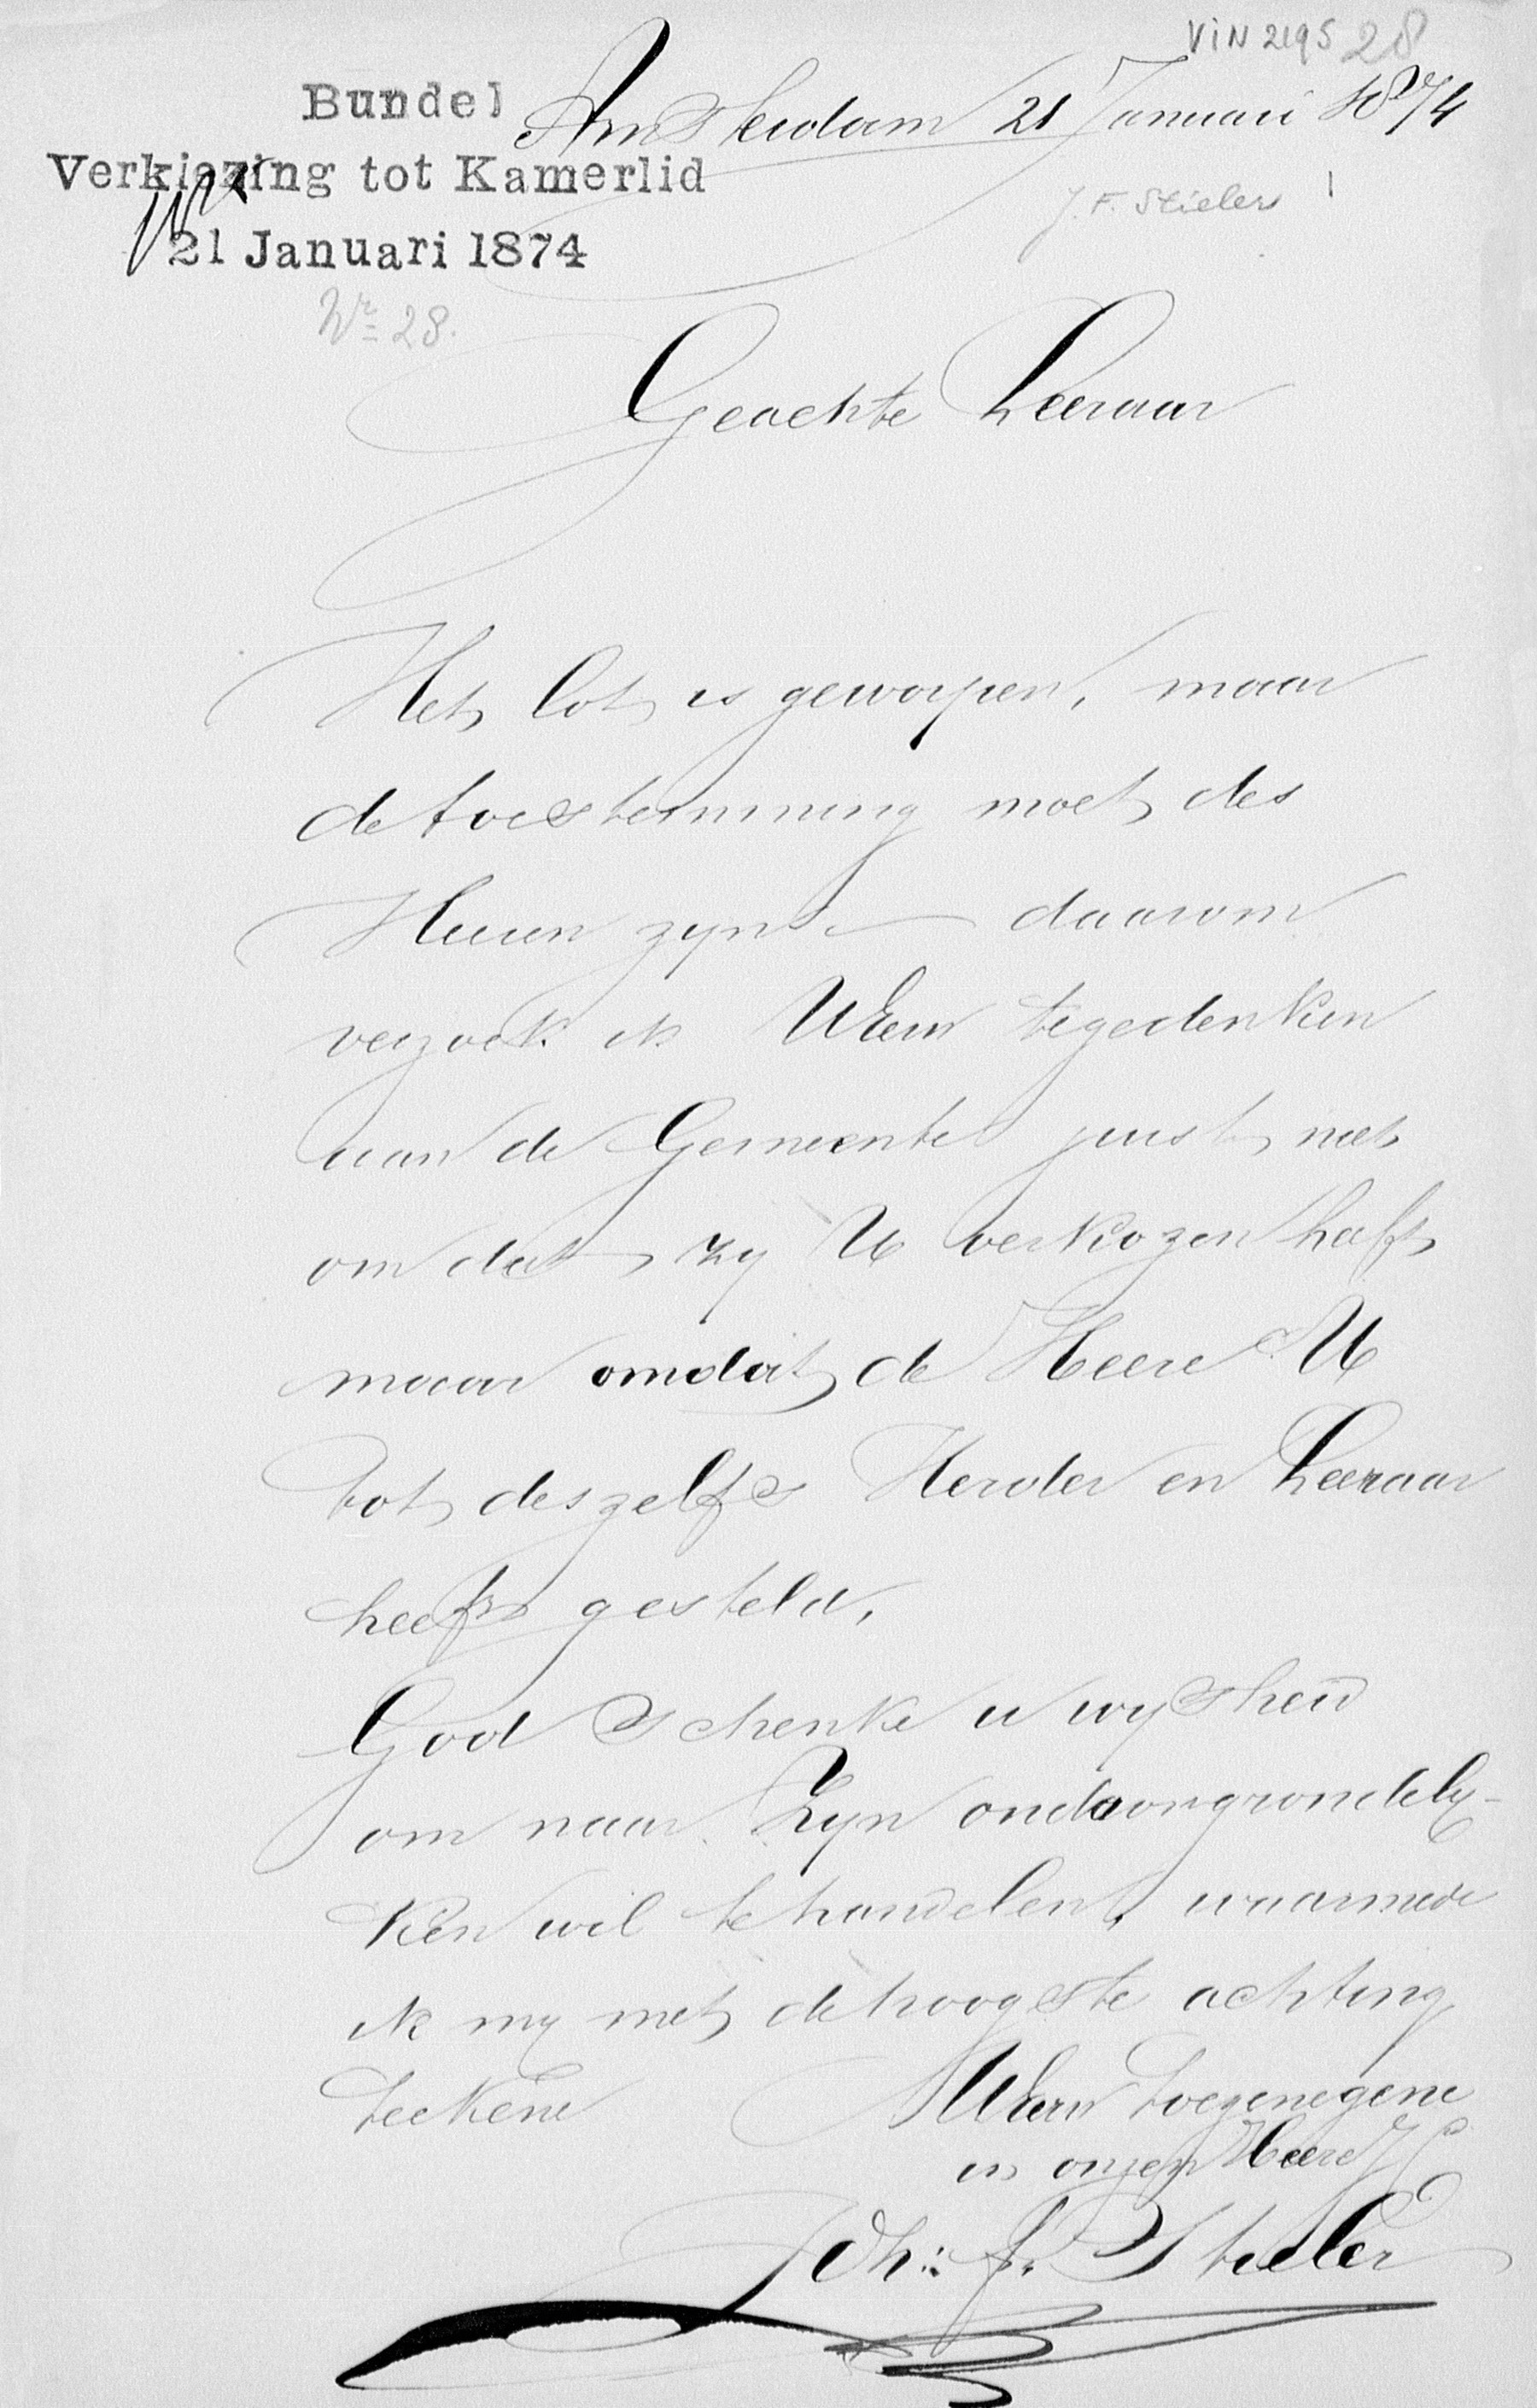 VIN 2195 28
Bundel
Verkiezing tot Kamerlid
21 Januari 1874
Nr 28.
Amsterdam 21 Januari 1874
J. F. Stieler
Geachte Leeraar
Het lot is geworpen, maar
de toestemming moet des
Heeren zyn daarom
verzoek ik UEerw te gedenken
aan de Gemeente juist niet
om dat zy U verkozen heeft
maar omdat de Heere U
tot deszelfs Herder en Leeraar
heeft gesteld,
God schenke u wysheid
om naar Zyn ondoorgrondely-
ken wil te handelen, waarmede
ik my met de hoogste achting
teekene
UEerw toegenegene
in onzen Heere JC
Joh: f. Stieler